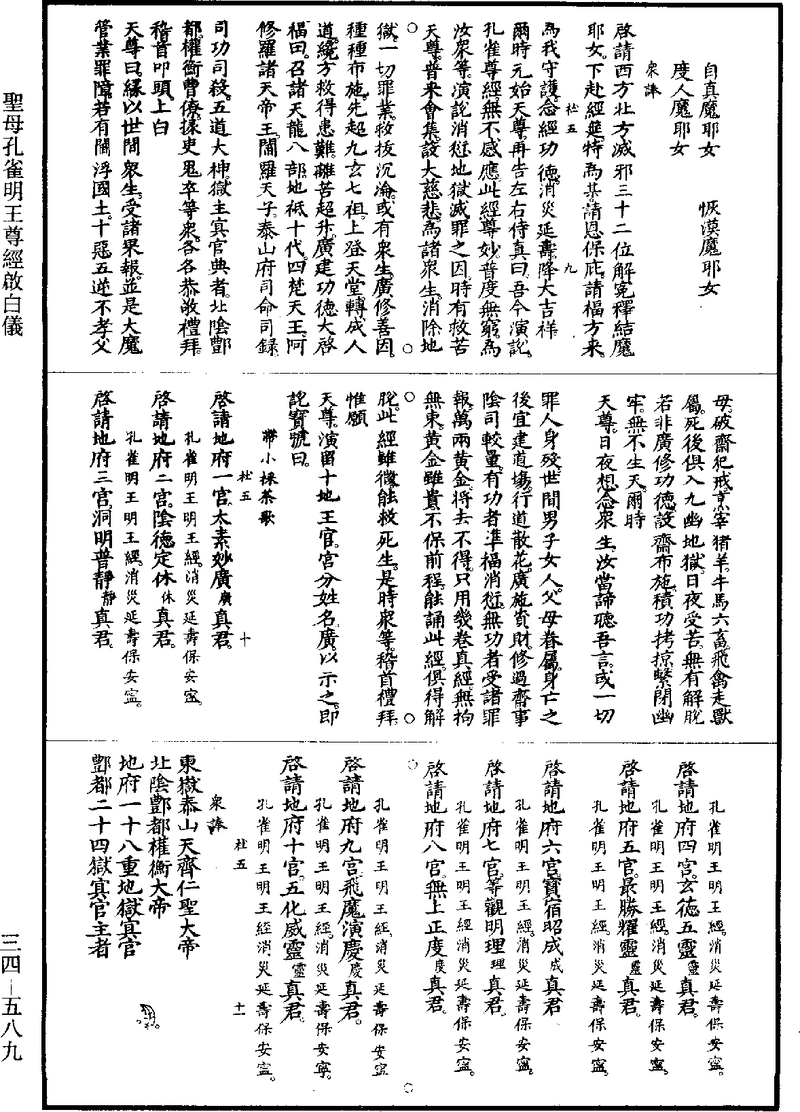 自真魔耶女　恢漠魔耶女
度人魔耶女
衆諱
啓請西方北方滅邪三十二位解冤釋結魔
耶女。下赴經筵特爲某請恩保庇請福方来
杜五　九
爲我守護念經功德消災延壽降大吉祥
爾時元始天尊再告左右侍真曰吾今演說
孔雀尊經無不感應此經尊妙普度無窮爲
汝衆等演說消愆地獄滅罪之因時有救苦
天尊普来會集設大慈悲爲諸衆生消除地
獄一切罪業救拔沉淪或有衆生廣修善因
種種布施先超九玄七祖上登天堂轉成人
道纔方救得患難離苦超升廣建功德大啓
福曰召諸天龍八部地祇十代四梵天王阿
修羅諸天帝王閻羅天子泰山府司命司録
司功司殺五道大神獄主冥官典者北陰酆
都權衡曹僚掾吏鬼卒等衆各各恭敬禮拜
稽首叩頭上白
天尊曰緣以世間衆生受諸果報並是大魔
管業罪障若有閻浮國土十惡五逆不孝父
母破齋犯戒烹宰猪羊牛馬六畜飛禽走獸
屬死後俱入九幽地獄日夜受苦無有解脫
若非廣修功德設齋布施積功拷掠繫閉幽
牢無不生天爾時
天尊日夜想念衆生汝當諦聽吾言或一切
罪人身殁世間男子女人父母眷屬身亡之
後宜建道塲行道散花廣施資財修過齋事
陰司較量有功者準福消愆無功者受諸罪
報萬兩黃金將去不得只用幾卷真經無拘
無束黃金雖貴不保前程能誦此經俱得解
脫此經雖微能救死生是時衆等稽首禮拜
惟願
天尊演留十地王官宮分姓名廣以示之即
說寳號曰
帶小採茶歌
杜五　十
啓請地府一宮太素妙廣廣真君
孔雀明王明王經消災延壽保安寍
啓請地府二宮陰德定休休真君
孔雀明王明王經消災延壽保安寍
啓請地府三宮洞明普靜靜真君
孔雀明王明王經消災延壽保安寍
啓請地府四宮玄德五靈靈真君
孔雀明王明王經消災延壽保安寍
啓請地府五官最勝耀靈靈真君
孔雀明王明王經消災延壽保安寍
啓請地府六宮寳宿昭成成真君
孔雀明王明王經消災延壽保安寍
啓請地府七宮等觀明理理真君
孔雀明王明王經消災延壽保安寍
啓請地府八宮無上正度度真君
孔雀明王明王經消災延壽保安寍
啓請地府九宮飛魔演慶慶真君
孔雀明王明王經消災延壽保安寧
啓請地府十宮五化威靈靈真君
孔雀明王明王經消災延壽保安寍
杜五　十一
衆諱
東嶽泰山天齊仁聖大帝
北陰酆都權衡大帝
地府一十八重地獄冥官
酆都二十四獄冥官主者
聖母孔雀明王尊經啟白儀
三四—五八九